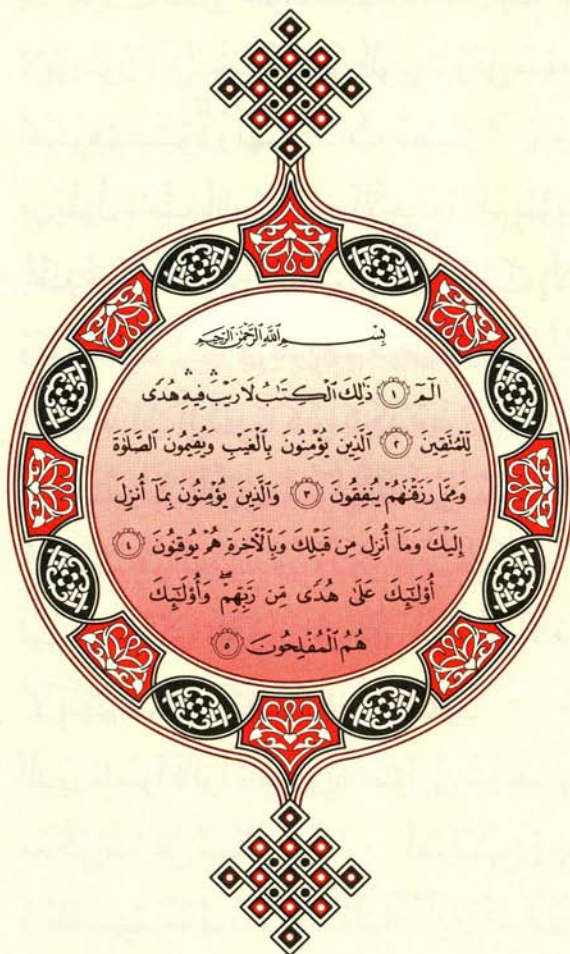 بِسْمِ اللَّهِ الرَّحْمَٰنِ الرَّحِيمِ
الٓمٓ ١ ذَٰلِكَ الْكِتَابُ لَا رَيْبَ ۛ فِيهِ ۛ هُدًى
لِّلْمُتَّقِينَ ٢ الَّذِينَ يُؤْمِنُونَ بِالْغَيْبِ وَيُقِيمُونَ الصَّلَاةَ
وَمِمَّا رَزَقْنَاهُمْ يُنفِقُونَ ٣ وَالَّذِينَ يُؤْمِنُونَ بِمَا أُنزِلَ
إِلَيْكَ وَمَا أُنزِلَ مِن قَبْلِكَ وَبِالْآخِرَةِ هُمْ يُوقِنُونَ ٤
أُولَٰئِكَ عَلَىٰ هُدًى مِّن رَّبِّهِمْ ۖ وَأُولَٰئِكَ
هُمُ الْمُفْلِحُونَ ٥